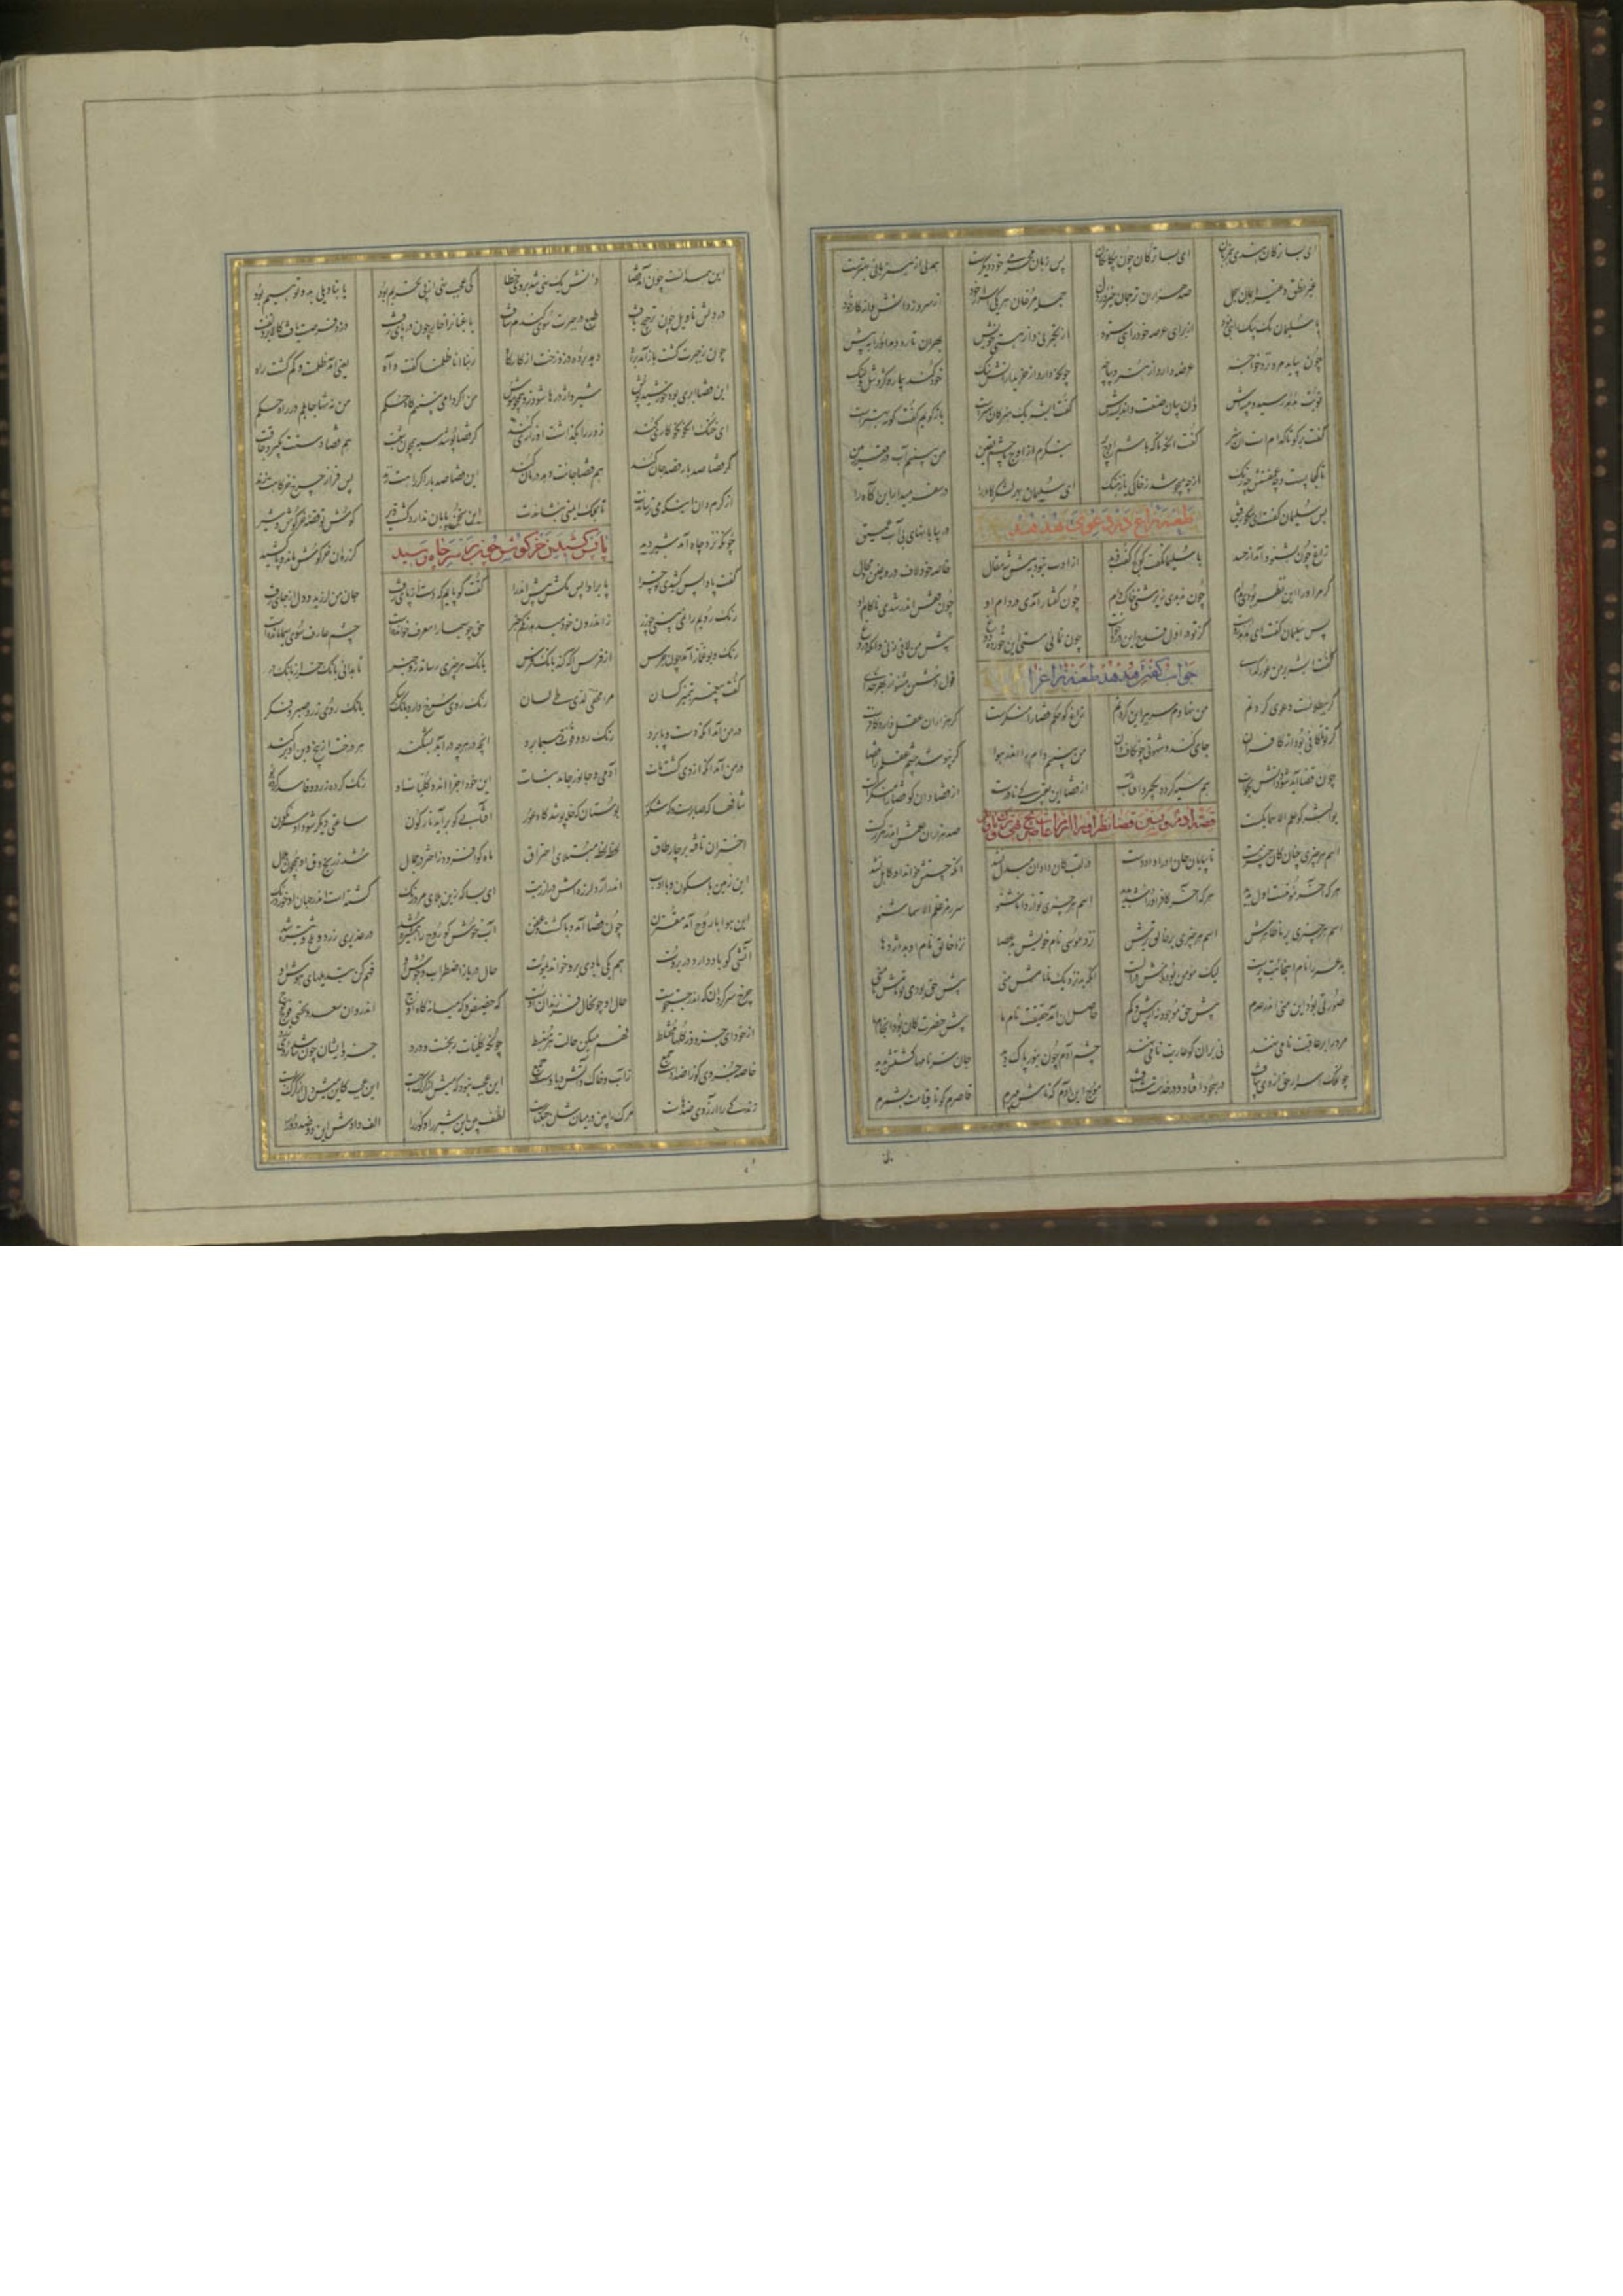 ای بسا ترکان هندی همزبان ای بسا ترکان چون بیگانگان پس زبان محرمی خود دیگرست همدلی از همزبانی بهترست
غیر نطق و غیر ایما و سجل صد هزاران ترجمان خیزد ز دل جمله مرغان هر یکی اسرار خود از هنر وز دانش و از کار خود
با سلیمان یک بیک وامی نمود از برای عرضه خود را می ستود از تکبر نی و از هستی خویش بهر آن تا ره دهد او را به پیش
چون بباید برده را از خواجه عرضه دارد از هنر دیباجه چونکه دارد از خریداریش ننگ خود کند بیمار و کر و شل و لنگ
نوبت هدهد رسید و پیشه اش وان بیان صنعت و اندیشه اش گفت ای شه یک هنر کان کهترست باز گویم گفت کوته بهترست
گفت بر گو تا کدام است آن هنر گفت آنگه که باشم اوج بر بنگرم از اوج با چشم یقین من ببینم آب در قعر زمین
تا کجایست و چه عمقستش چه رنگ از چه میجوشد ز خاکی یا ز سنگ ای سلیمان بهر لشکرگاه را در سفر میدار این آگاه را
پس سلیمان گفت ای نیکو رفیق در بیابانهای بی آب عمیق
طعنه زاغ در دعوی هدهد
زاغ چون بشنود آمد از حسد با سلیمان گفت کو کژ گفت و بد از ادب نبود به پیش شه مقال خاصه خود لاف دروغین و محال
گر مر او را این نظر بودی مدام چون ندیدی زیر مشتی خاک دام چون گرفتار آمدی در دام او چون قفس اندر شدی ناکام او
پس سلیمان گفت ای هدهد رواست کز تو در اول قدح این درد خاست چون نمائی مستی این خورده دوغ پیش من لافی زنی وانگه دروغ
گفت ای شه بر من عور گدای قول دشمن مشنو از بهر خدای
جواب گفتن هدهد طعنه زاغ را
گر ببطلانست دعوی کردنم من نهادم سر ببر این گردنم زاغ کو حکم قضا را منکرست گر هزاران عقل دارد کافرست
در تو تا کافی بود از کافران جای گند و شهوتی چون کاف ران من ببینم دام را اندر هوا گر نپوشد چشم عقلم را قضا
چون قضا آید شود دانش بخواب مه سیه گردد بگیرد آفتاب از قضا این تعبیه کی نادرست از قضا دان کو قضا را منکرست
بوالبشر کو علم الاسما بگست صد هزاران علمش اندر هر رگست
قصه آدم و بستن قضا نظر او را از مراعات صریح نهی و تاویل
اسم هر چیزی چنان کان چیز هست تا بپایان جان او را داد دست هر لقب کان داد آن مبدل نشد آنکه چستش خواند او کاهل نشد
هر که آخر مؤمنست اول بدید هر که آخر کافر او را شد پدید اسم هر چیزی تو از دانا شنو سر رمز علم الاسما شنو
اسم هر چیزی بر ما ظاهرش اسم هر چیزی بر خالق سرش نزد موسی نام چوبش بد عصا نزد خالق نام او بد اژدها
بد عمر را نام اینجا بت پرست لیک مؤمن بود نامش در الست آنکه بد نزدیک ما نامش منی پیش حق بودی تو نقش با منی
صورتی بود این منی اندر عدم پیش حق موجود نه بیش و نه کم حاصل آن آمد حقیقت نام ما پیش حضرت کان بود انجام ما
مرد را بر عاقبت نامی نهند نی بر آن کو عاریت نامی نهند چشم آدم چون بنور پاک دید جان و سر نامها گشتش پدید
چون ملک اسرار حق از وی بیافت در سجود افتاد و در خدمت شتافت مدح این آدم که نامش میبرم قاصرم گر تا قیامت بشمرم
این همه دانست چون آمد قضا دانش یک نهی شد بر وی خطا کی عجب نهی از پی تحریم بود یا بتاویلی بد و توهیم بود
در دلش تاویل چون ترجیح یافت طبع در حیرت سوی گندم شتافت باغبان را خار چون در پای رفت دزد فرصت یافت کالا برد تفت
چون ز حیرت گشت باز آمد براه دید برده دزد رخت از کارگاه ربنا انا ظلمنا گفت و آه یعنی آمد ظلمت و گم گشت راه
این قضا ابری بود خورشید پوش شیر و اژدرها شود زو همچو موش من اگر دامی نبینم گاه حکم من نه تنها جاهلم در راه حکم
ای خنک آنکو نکو کاری کند زور را بگذاشت او زاری کند گر قضا پوشد سیه همچون شبت هم قضا دستت بگیرد عاقبت
گر قضا صد بار قصد جان کند هم قضا جانت دهد درمان کند این قضا صد بار اگر راهت زند پس فراز چرخ خرگاهت زند
از کرم دان اینکه می ترساندت تا بملک ایمنی بنشاندت این سخن پایان ندارد گشت دیر گوش کن تو قصه خرگوش و شیر
پای پس کشیدن خرگوش چون بر سر چاه رسید
چونکه نزد چاه آمد شیر دید کز ره آن خرگوش ماند و پا کشید
گفت پا واپس کشیدی تو چرا پای را واپس مکش پیش اندرا گفت کو پایم که دست و پای رفت جان من لرزید و دل از جای رفت
رنگ رویم را نمی بینی چو زر ز اندرون خود میدهد رنگم خبر حق چو سیما را معرف خوانده است چشم عارف سوی سیما مانده است
رنگ و بو غماز آمد چون جرس از فرس آگه کند بانگ فرس بانگ هر چیزی رساند زو خبر تا بدانی بانگ خر از بانگ در
گفت پیغمبر بتمییز کسان مرء مخفی لدی طی اللسان رنگ روی سرخ دارد بانگ شکر بانگ روی زرد صبر و نکر
در من آمد آنکه دست و پا برد رنگ رو و قوت و سیما برد آنچه در هر چه در آید بشکند هر درخت از بیخ و بن او بر کند
در من آمد آنکه از وی گشت مات آدمی و جانور جامد نبات این خود اجزااند و کلیات ازو رنگ کرده زرد و فاسد کرده بو
تا جهان گه صابرست و گه شکور بوستان گه حله پوشد گاه عور آفتابی کو برآید نار گون ساعتی دیگر شود او سرنگون
اختران تافته بر چار طاق لحظه لحظه مبتلای احتراق ماه کو افزود ز اختر در جمال شد ز رنج دق او همچون هلال
این زمین با سکون با ادب اندر آرد زلزله ش در لرز تب ای بسا که زین بلای مرده ریگ گشته است اندر جهان او خرد و ریگ
این هوا با روح آمد مقترن چون قضا آید وبا گشت و عفن آب خوش کو روح را همشیره شد در غدیری زرد و تلخ و تیره شد
آتشی کو باد دارد در بروت هم یکی بادی برو خواند یموت حال دریا ز اضطراب و جوش او فهم کن تبدیلهای هوش او
چرخ سرگردان که اندر جست و جوست حال او چون حال فرزندان اوست گه حضیض و گه میانه گاه اوج اندر او از سعد و نحسی فوج فوج
از خود ای جزوی ز کلها مختلط فهم میکن حالت هر منبسط چونکه کلیات را رنجست و درد جزو ایشان چون نباشد روی زرد
خاصه جزوی کو ز اضداد است جمع ز آب و خاک و آتش و بادست جمع این عجب نبود که میش از گرگ جست این عجب کاین میش دل در گرگ بست
زندگانی آشتی ضدهاست مرگ آن کاندر میان شان جنگ خاست لطف حق این شیر را و گور را الف دادست این دو ضد دور را